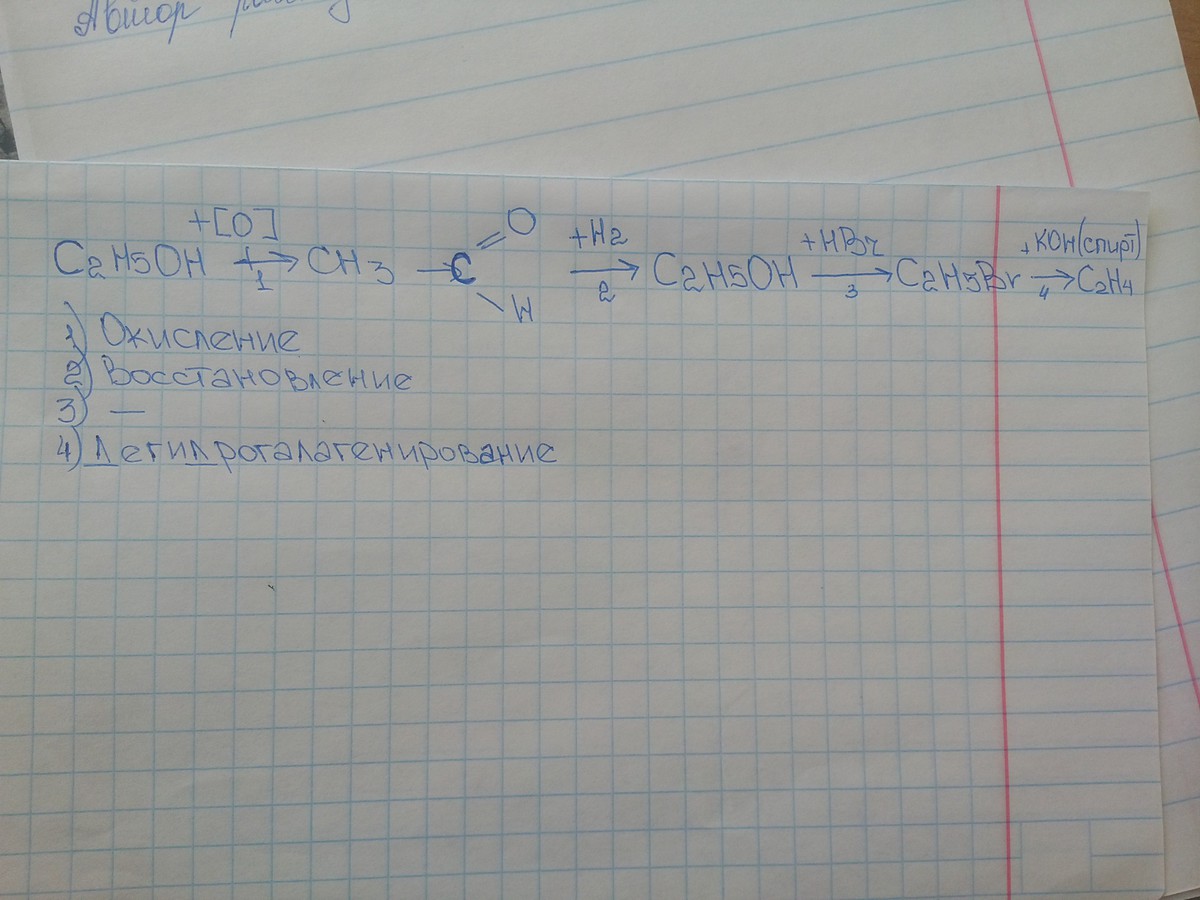 Автор
+[O]
C2H5OH → CH3 — C =O \H +H2 → C2H5OH +HBr → C2H5Br +KOH(спирт) → C2H4
1 2 3 4
1) Окисление
2) Восстановление
3) —
4) Дегидрогалагенирование